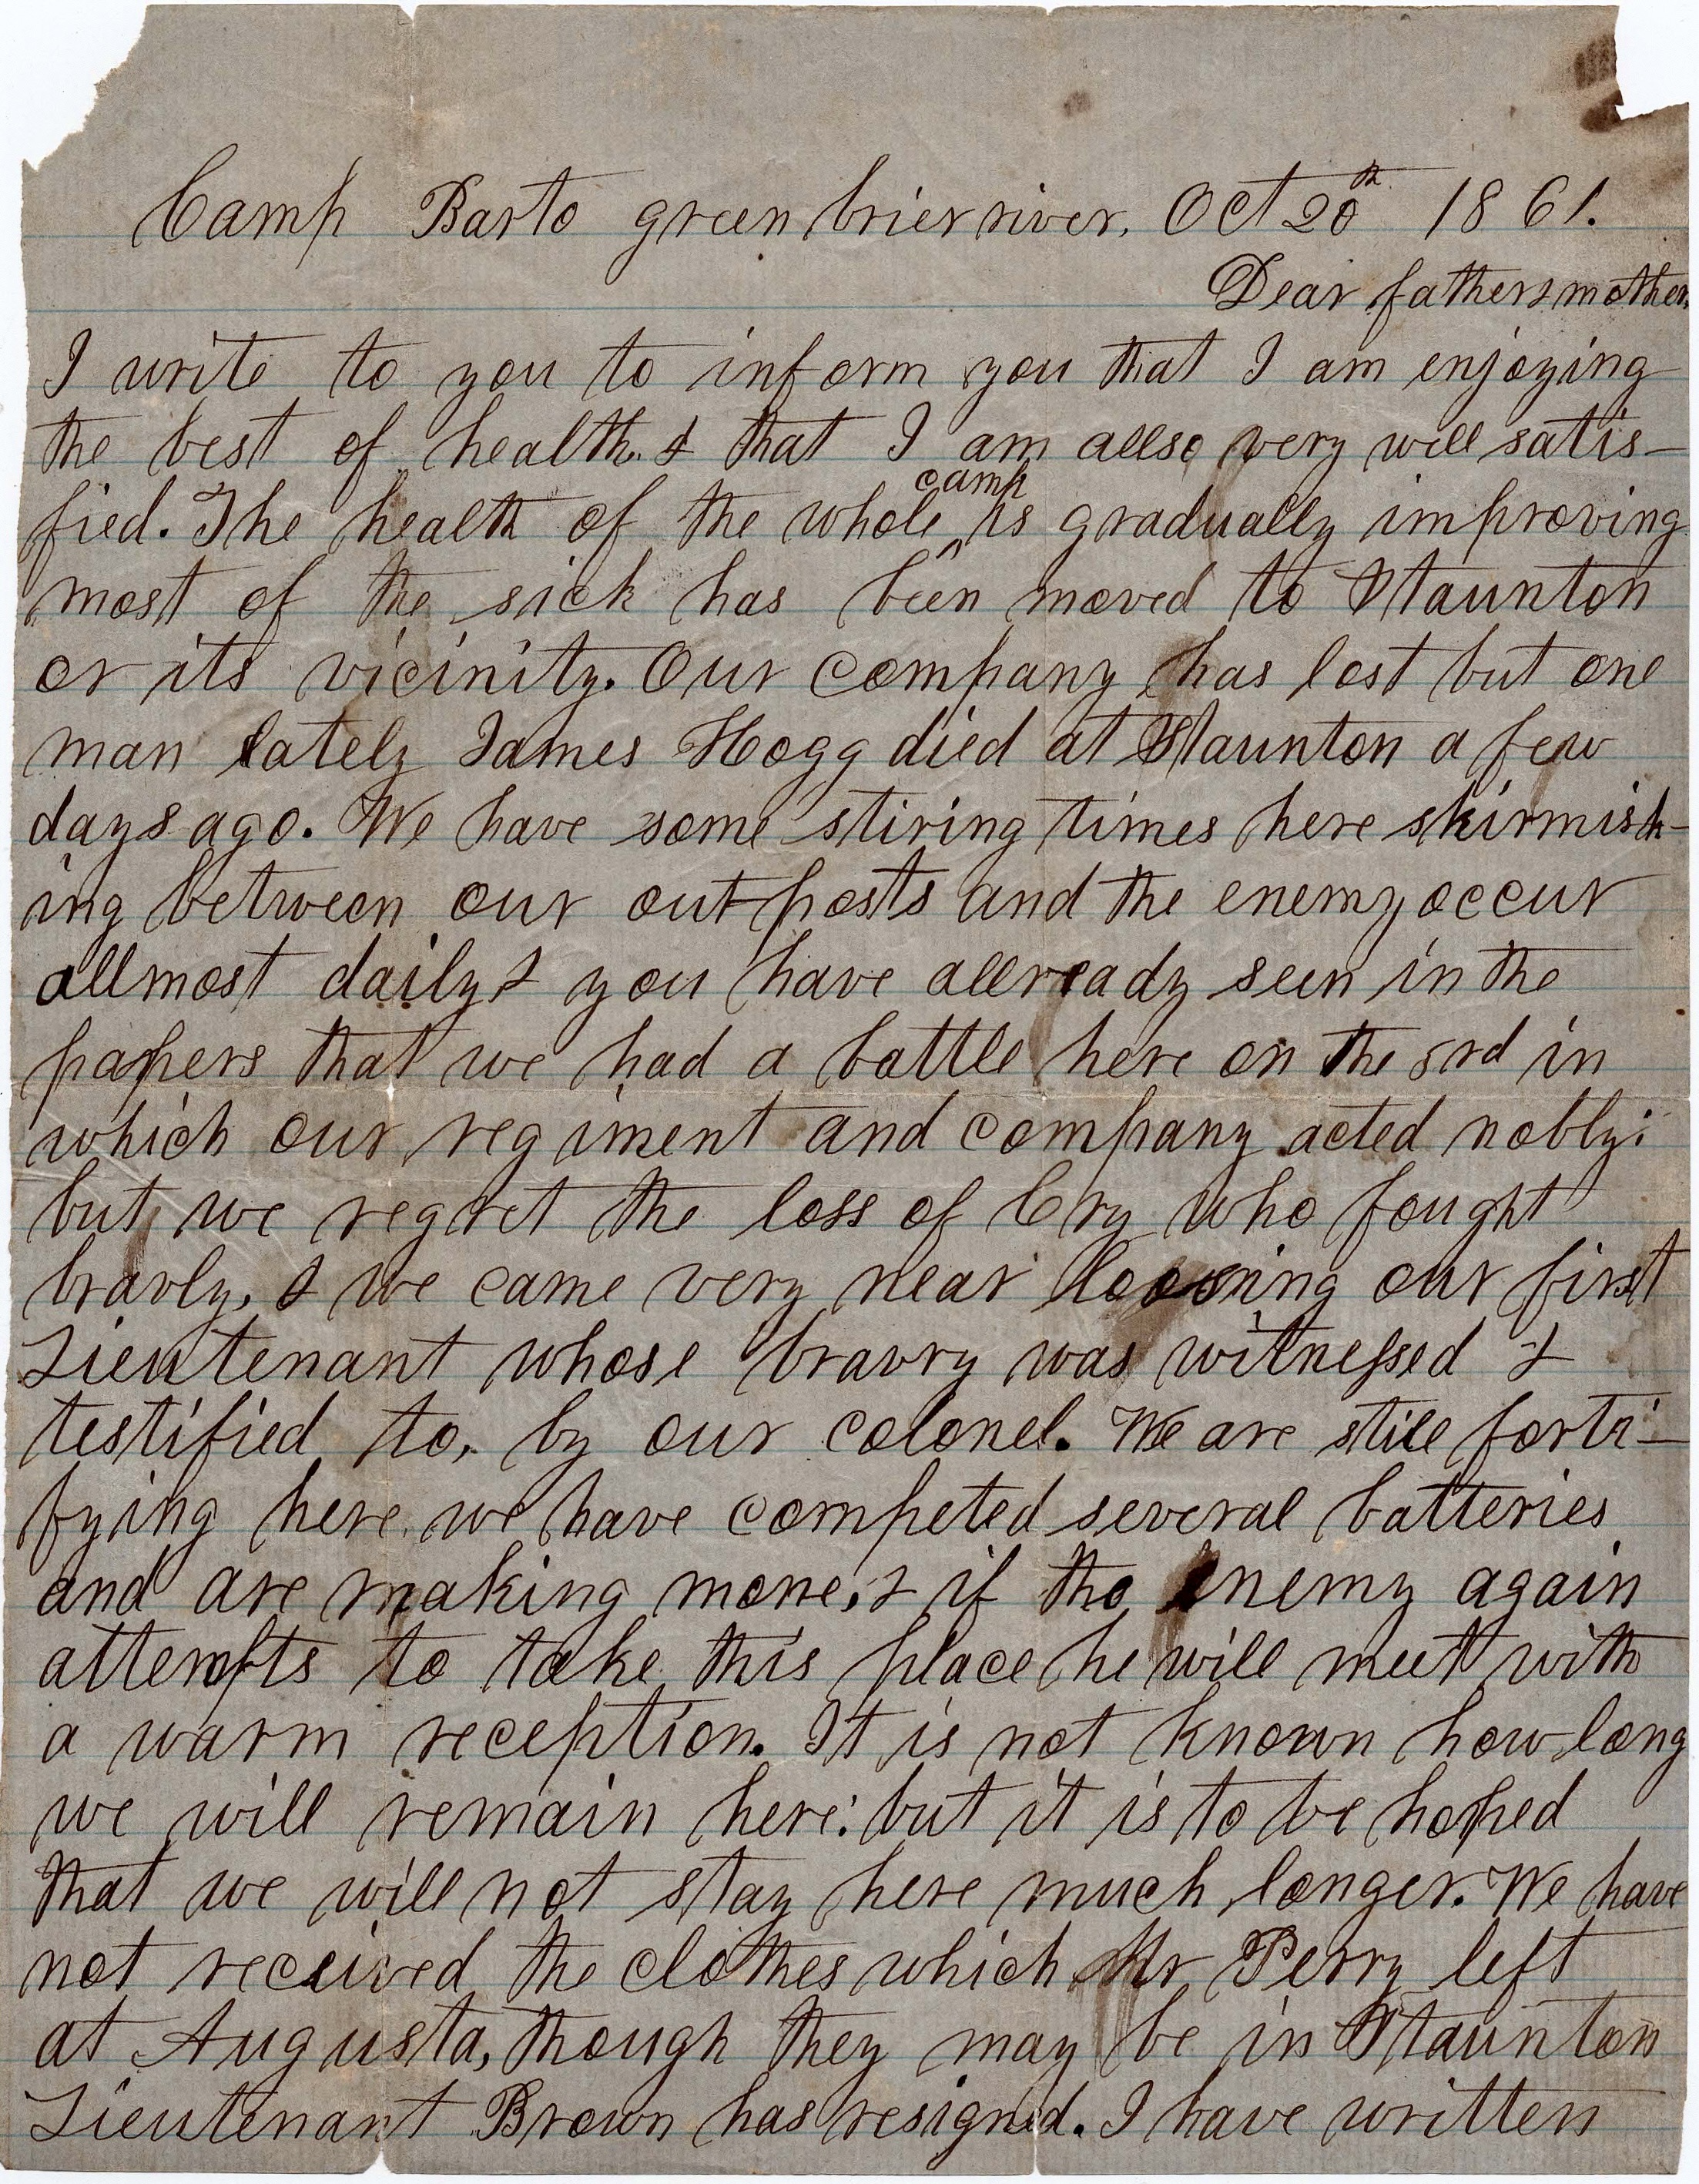 Camp Barto green brier river, Oct 20th 1861.
Dear father & mother
I write to you to inform you that I am enjoying
the best of health. & that I am allso very well satis-
fied. The health of the whole camp is gradually improving
most of the sick has been moved to Staunton
or its vicinity. Our company has lost but one
man lately James Hogg died at Staunton a few
days ago. We have some stiring times here skirmish-
ing between our out posts and the enemy occur
allmost daily & you have allready seen in the
papers that we had a battle here on the 3rd in
which our regiment and company acted nobly;
but we regret the loss of Cry who fought
bravly, & we came very near loosing our first
Lieutenant whose bravry was witnessed &
testified to, by our colonel. We are still forti-
fying here we have competed several batteries
and are making more, & if the enemy again
attempts to take this place he will meet with
a warm reception. It is not known how long
we will remain here: but it is to be hoped
that we will not stay here much longer. We have
not received the clothes which Mr Perry left
at Augusta, though they may be in Staunton
Lieutenant Brown has resigned. I have written